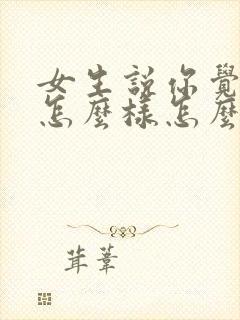 女生說你覺
怎麼樣怎麼
茸葦